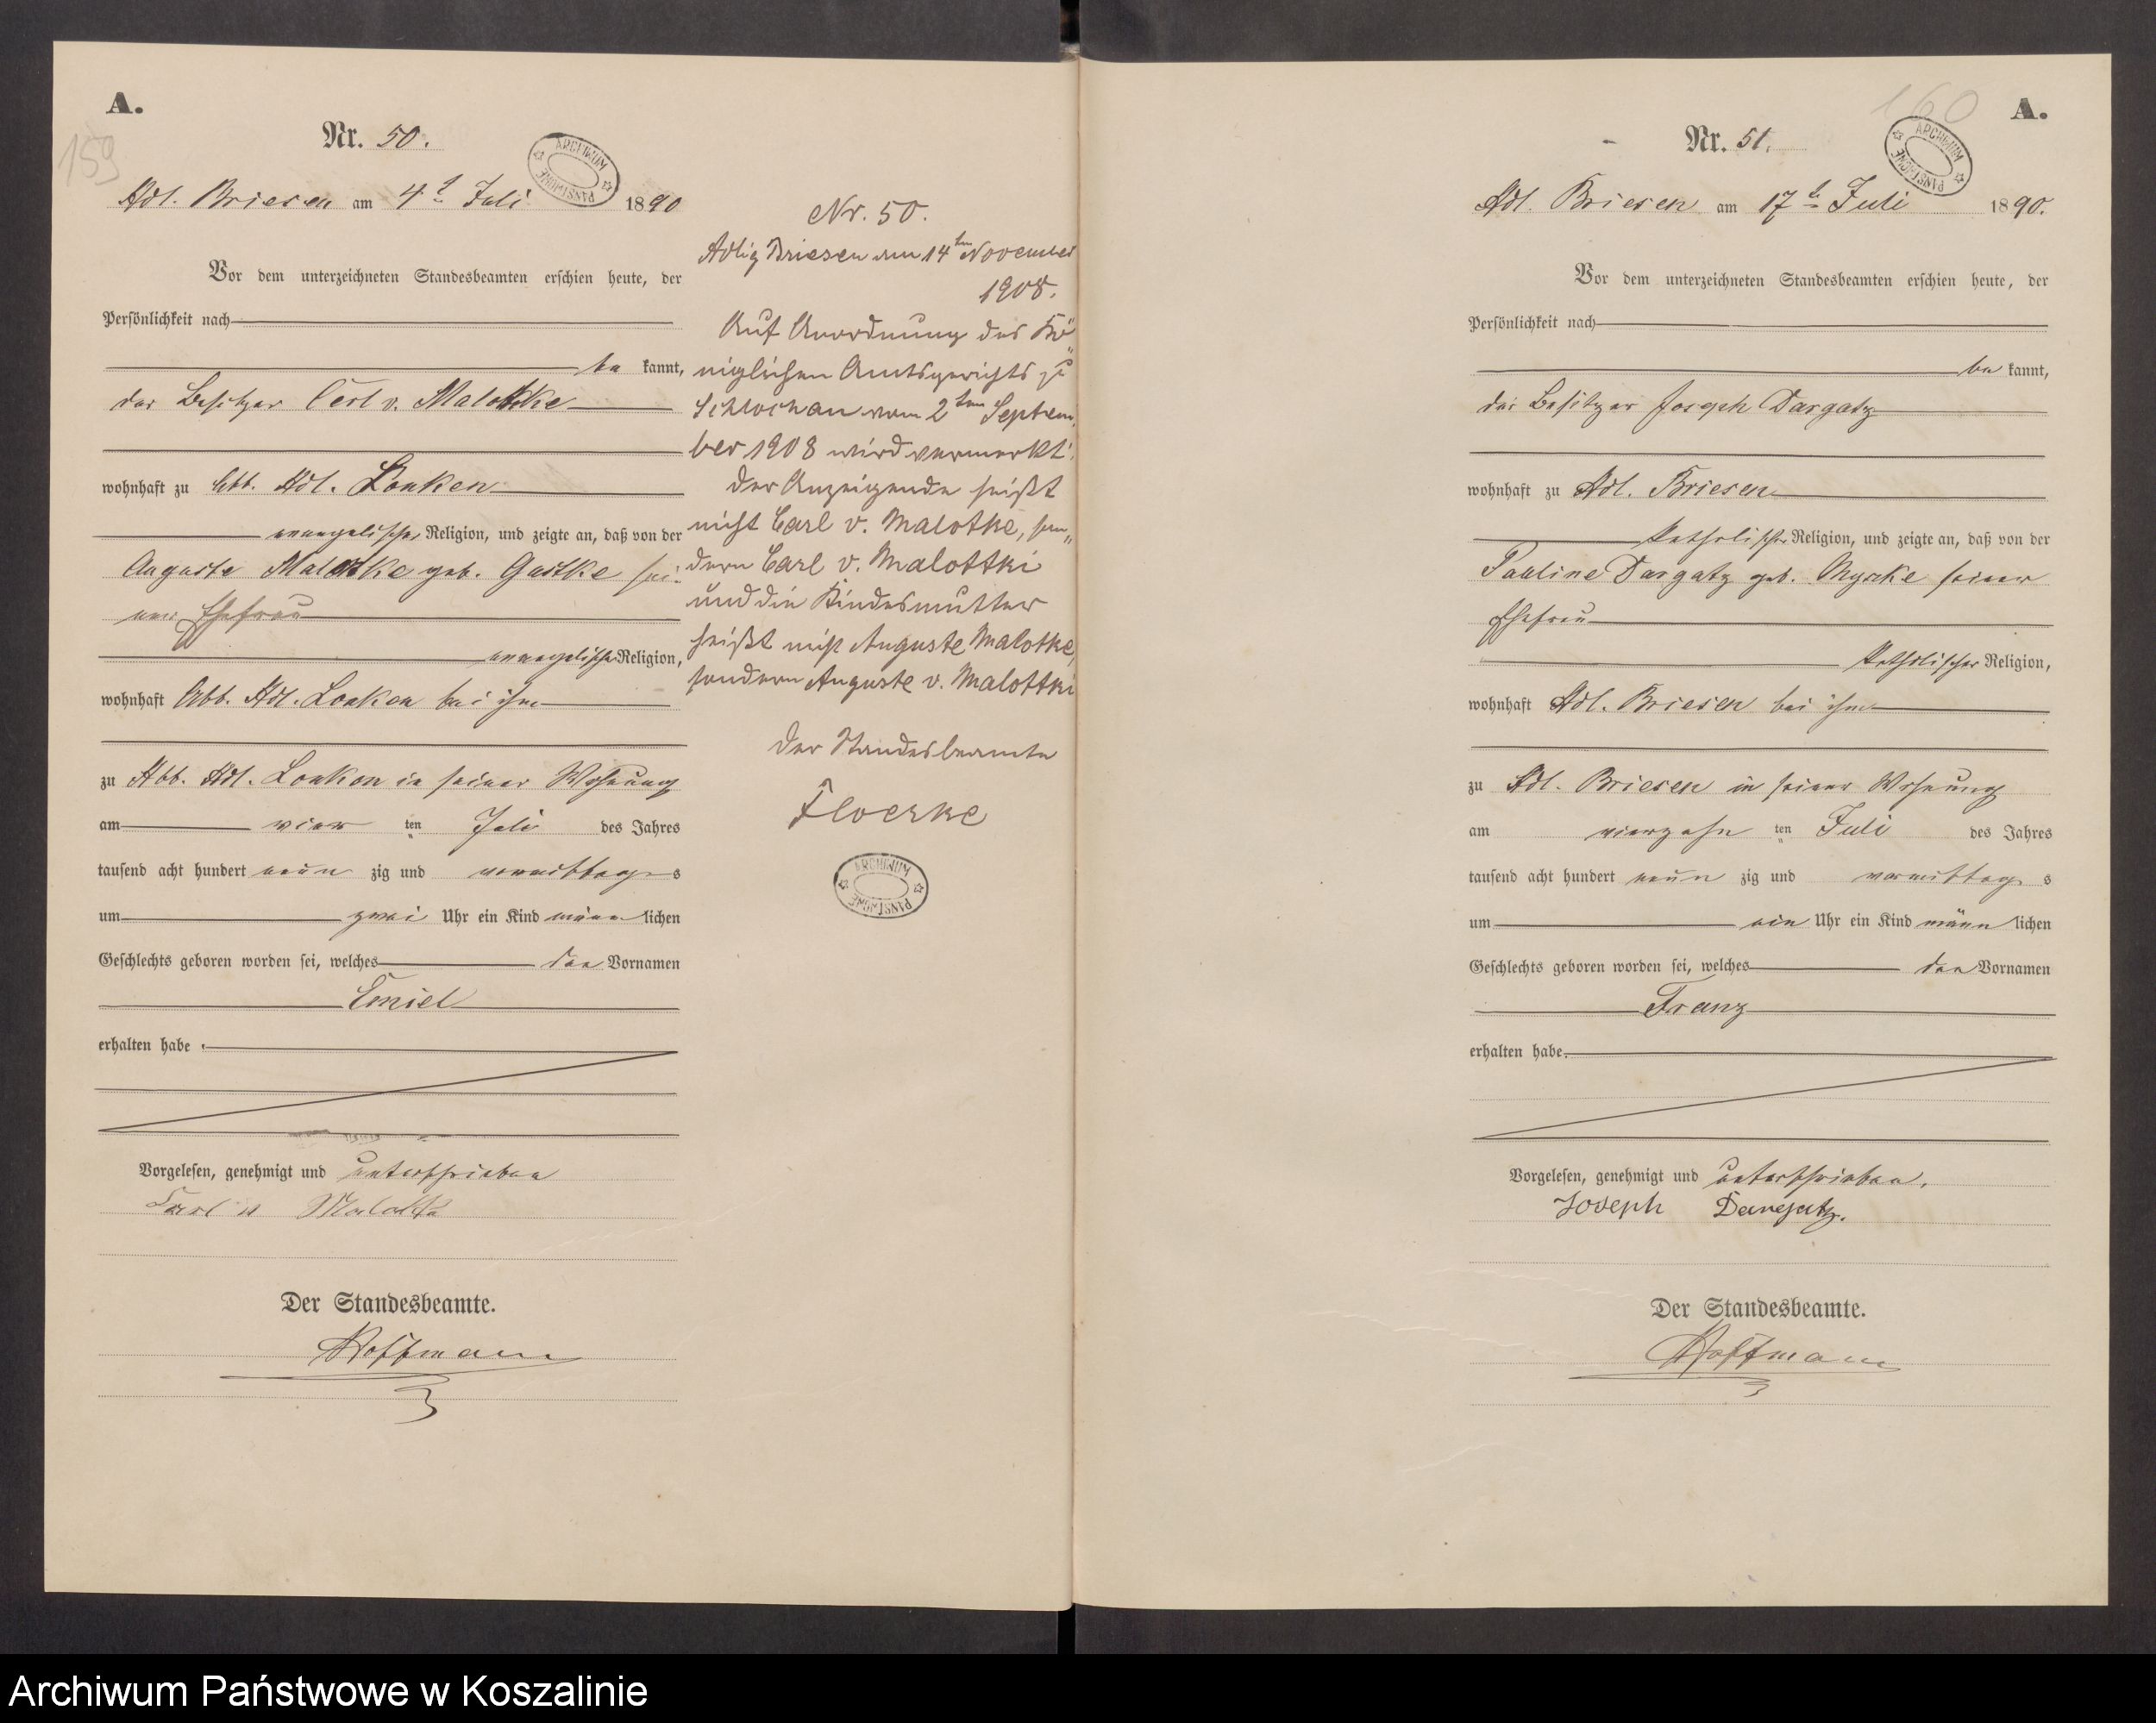 A.
159
Nr. 50.
ARCHIWUM PAŃSTWOWE
Adl. Briesen am 4t Juli 1890
Vor dem unterzeichneten Standesbeamten erschien heute, der
Persönlichkeit nach
be kannt,
der Besitzer Carl v. Malottke
wohnhaft zu Abb. Adl. Lonken
evangelischer Religion, und zeigte an, daß von der
Auguste Malottke geb. Gastke sei-
ner Ehefrau
evangelischer Religion,
wohnhaft Abb. Adl. Lonken bei ihm
zu Abb. Adl. Lonken in seiner Wohnung
am vier ten Juli des Jahres
tausend acht hundert neun zig und vormittag s
um zwei Uhr ein Kind männ lichen
Geschlechts geboren worden sei, welches den Vornamen
Emiel
erhalten habe.
Vorgelesen, genehmigt und unterschrieben
Carl v Malottke
Der Standesbeamte.
Hoffmann
Nr. 50.
Adlig Briesen am 14ten November
1908.
Auf Anordnung des Kö„
niglichen Amtsgerichts zu
Schlochau vom 2ten Septem„
ber 1908 wird vermerkt:
Der Anzeigende heißt
nicht Carl v. Malotke, son„
dern Carl v. Malottki
und die Kindesmutter
heißt nicht Auguste Malotke,
sondern Auguste v. Malottki
Der Standesbeamte
Floerke
ARCHIWUM PAŃSTWOWE
160
A.
Nr. 51.
ARCHIWUM PAŃSTWOWE
Adl. Briesen am 17t Juli 1890.
Vor dem unterzeichneten Standesbeamten erschien heute, der
Persönlichkeit nach
be kannt,
der Besitzer Joseph Dargatz
wohnhaft zu Adl. Briesen
katholischer Religion, und zeigte an, daß von der
Pauline Dargatz geb. seiner
Ehefrau
katholischer Religion,
wohnhaft Adl. Briesen bei ihm
zu Adl. Briesen in seiner Wohnung
am vierzehn ten Juli des Jahres
tausend acht hundert neun zig und vormittag s
um ein Uhr ein Kind männ lichen
Geschlechts geboren worden sei, welches den Vornamen
Franz
erhalten habe.
Vorgelesen, genehmigt und unterschrieben.
Joseph Dargatz.
Der Standesbeamte.
Hoffmann
Archiwum Państwowe w Koszalinie